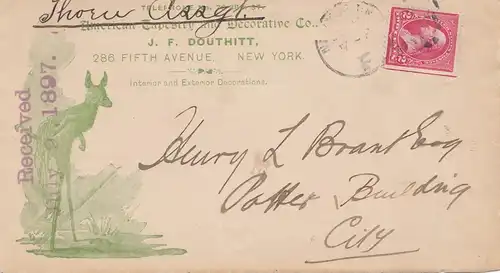 TELEPHONE
American Tapestry and Decorative Co.,
J. F. DOUTHITT,
286 FIFTH AVENUE, NEW YORK.
Interior and Exterior Decorations.
Received
July 1897.
Henry L Brant Esq
Potter Building
City